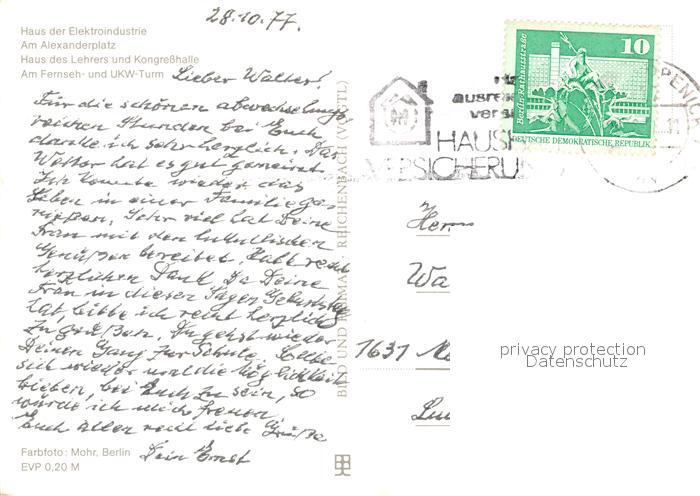 28.10.77.
Haus der Elektroindustrie
Am Alexanderplatz
Haus des Lehrers und Kongreßhalle
Am Fernseh- und UKW-Turm
Lieber Walter!
Für die schönen abwechslungs
reichen Stunden bei Euch
danke ich sehr herzlich. Das
Wetter hat es gut gemeint.
Ich konnte wieder das
Leben in einer Familie ge-
nießen. Sehr viel hat Deine
Frau mit den lukullischen
Genüßen bereitet. Habt recht
herzlichen Dank. Da Deine
Frau in diesen Tagen Geburtstag
hat, bitte ich recht herzlich
zu grüßen. Du gehst wieder
Deinen Gang zur Schule. Sollte
sich wieder mal die Möglichkeit
bieten, bei Euch zu sein, so
würde ich mich freuen.
Euch allen recht liebe Grüße
Dein Ernst
Farbfoto: Mohr, Berlin
EVP 0,20 M
BILD UND HEIMAT REICHENBACH (VOGTL)
10
Berlin · Rathausstraße
DEUTSCHE DEMOKRATISCHE REPUBLIK
ausre
vers
HAUS
VERSICHERU
Herrn
Wa
1631
privacy protection
Datenschutz